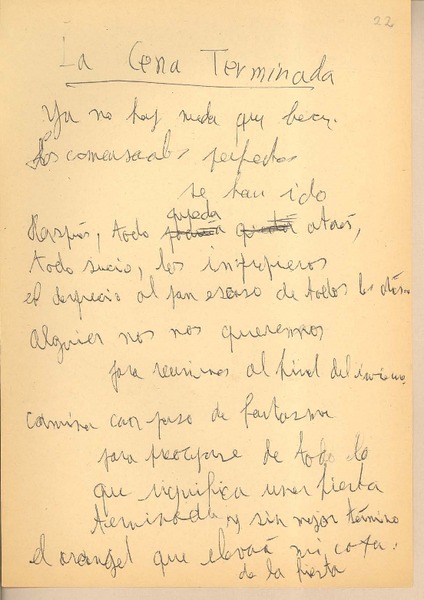 22
La Cena Terminada
Ya no hay nada que hacer.
Los comensales perfectos
se han ido
Después, todo queda atrás,
todo sucio, los
el desprecio al pan escaso de todos los
Alguien nos nos queremos
para reunirnos al final del
camina con paso de fantasma
para de todo lo
que significa una fiesta
terminada y sin mejor término
el que elevará mi copa.
de la fiesta